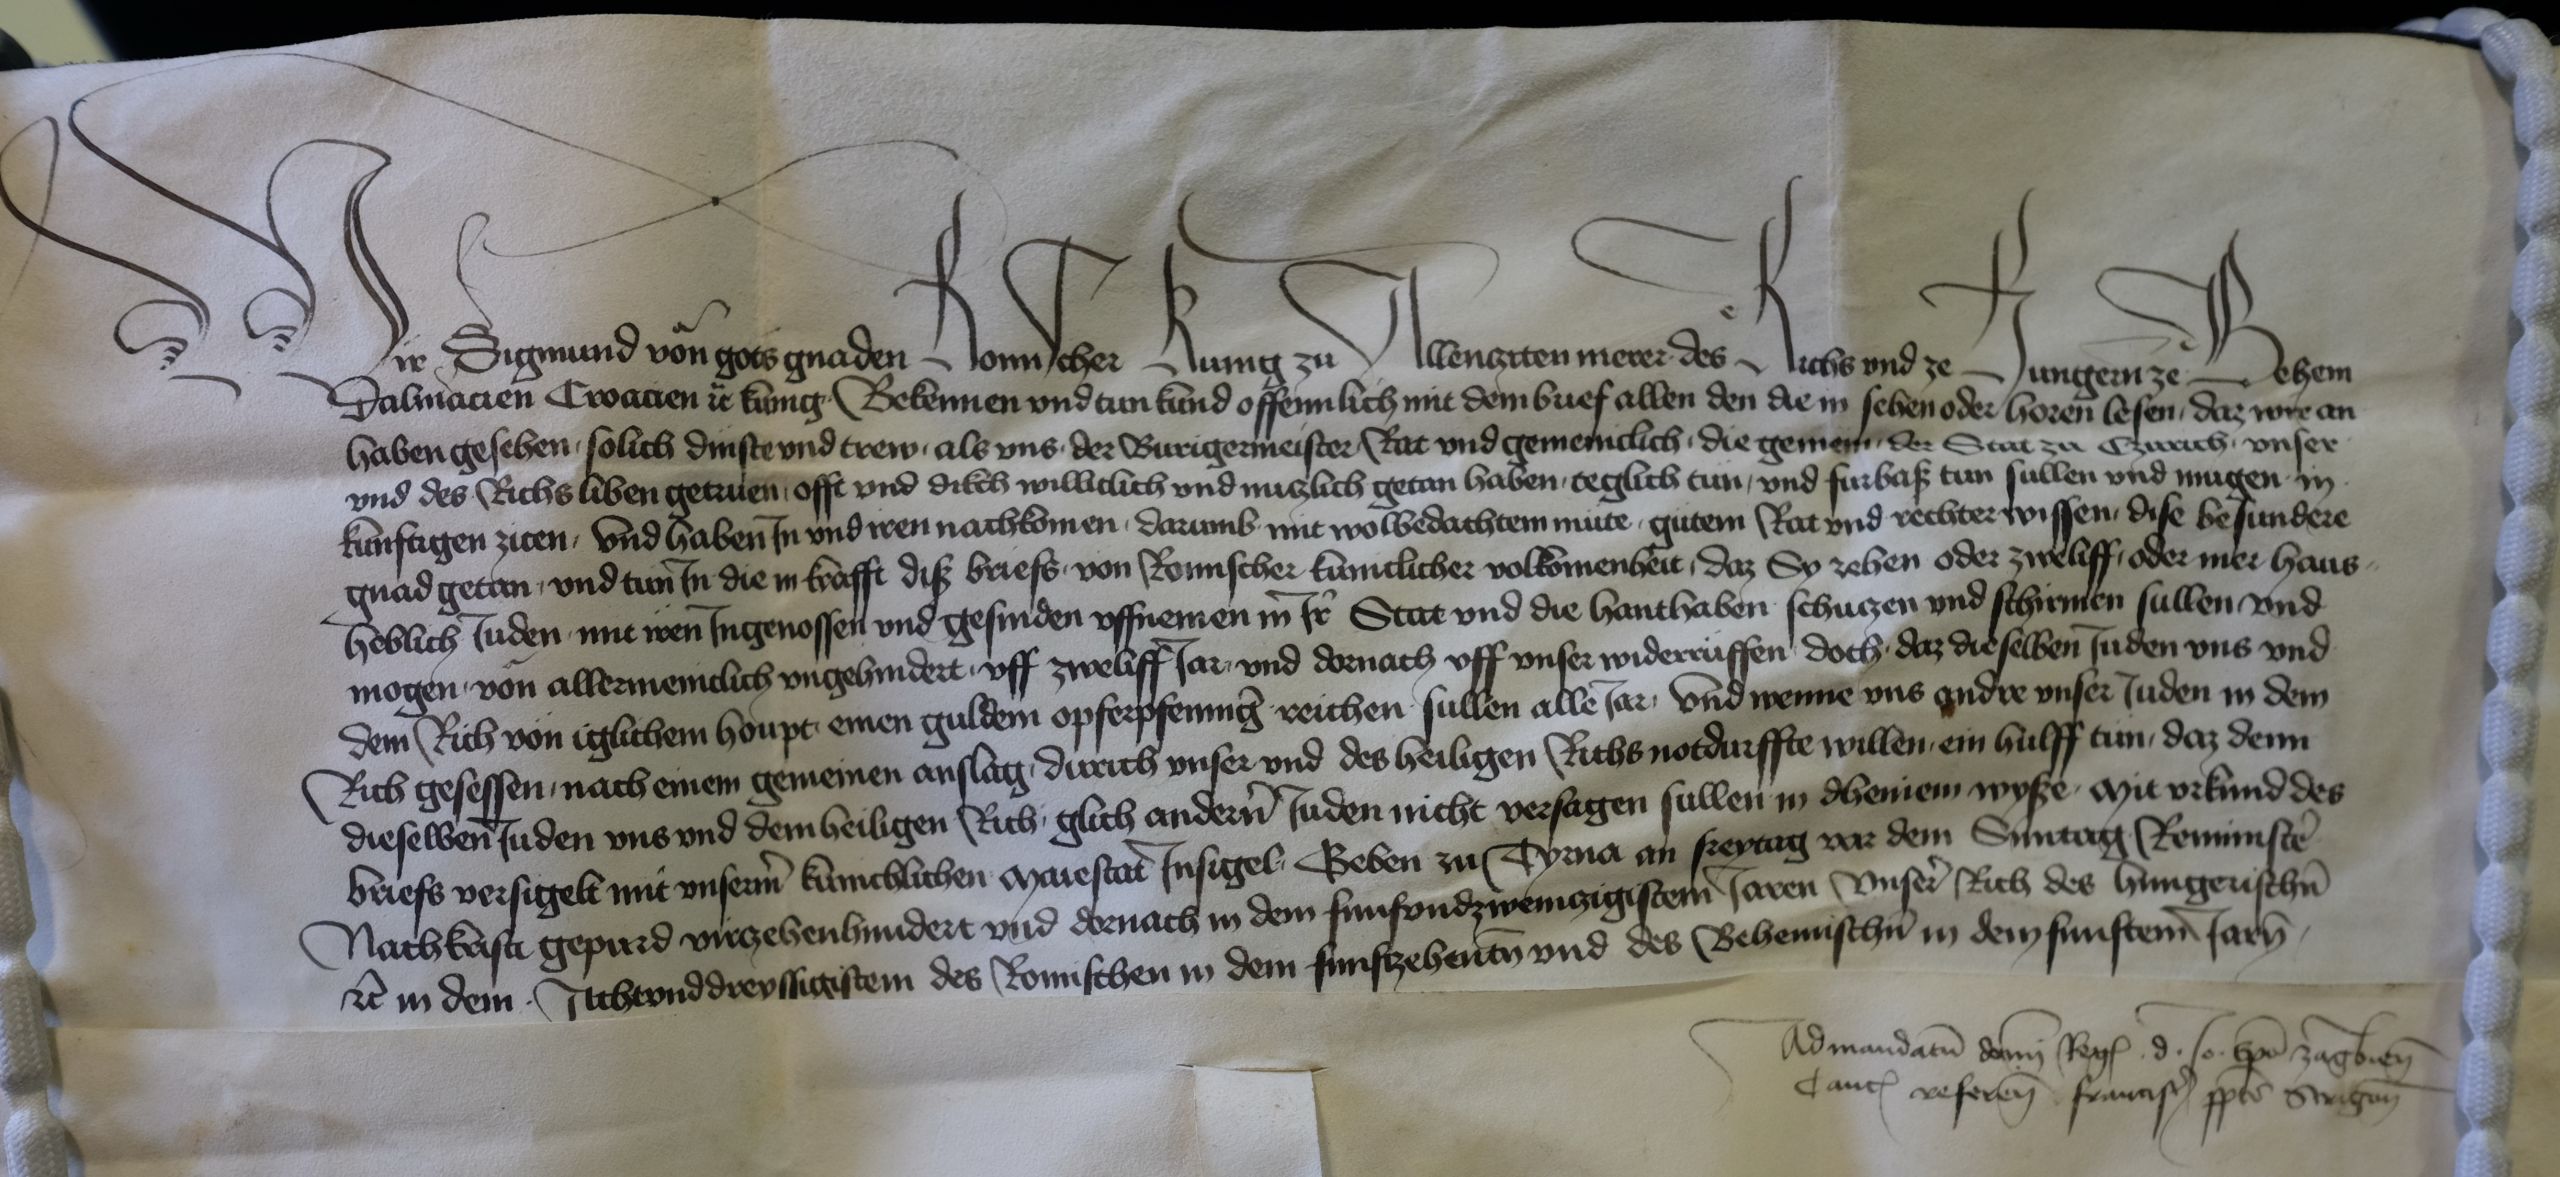 Wir Sigmund von gots gnaden Romischer Kunig zu Allenziten merer des Richs und ze Hungern ze Behem
Dalmacien Croacien ꝛc kunig Bekennen und tun kund offennlich mit dem brief allen den die in sehen oder horen lesen, daz wir an
haben gesehen, solich dinste und trew, als uns, der Burigermeister Rat und gemeinclich, die gemein, der Stat zu Czurich, unser
und des Richs liben getruen, offt und dikch williclich und nuczlich getan haben, teglich tun, und furbaß tun sullen und mugen in
kunftigen ziten, Und haben In und iren nachkomen, darumb mit wolbedachtem mute, gutem Rat und rechter wissen, dise besundere
gnad getan, und tun In die in krafft diß briefs, von Romischer kuniclicher volkomenheit, daz Sy zehen oder zweliff, oder mer haus
heblich Juden, mit iren Ingenossen und gesinden uffnemen in Ir Stat und die hanthaben schuczen und schirmen sullen und
mogen, von allermeniclich ungehindert, uff zweliff Jar, und dornach uff unser widerrüffen doch, daz dieselben Juden uns und
dem Rich von iglichem houpt, einen guldein opferpfennig reichen sullen alle Jar, Und wenne uns andre unser Juden in dem
Rich gesessen, nach einem gemeinen anslag, durich unser und des heiligen Richs notdurffte willen, ein hulff tun, daz denn
dieselben Juden uns und dem heiligen Rich, glich andern Juden nicht versagen sullen in dheinem wyße, Mit urkund des
briefs versigelt mit unserm kunichlichen Maiestat Insigel, Geben zu Tyrna an freytag vor dem Suntag Reminiscere
Nach krists gepurd virczehenhundert und dornach in dem funfundzwenczigistem Jaren Unser Rich des hungerischen
ꝛc in dem Achtunddreyssigistem des Romischen in dem funfzehenten und des Behemischen in dem funftem Jaren,
Ad mandatum domini Regis d. Jo. Epo zagabrien
Canc referen franciscus ppts Strigon